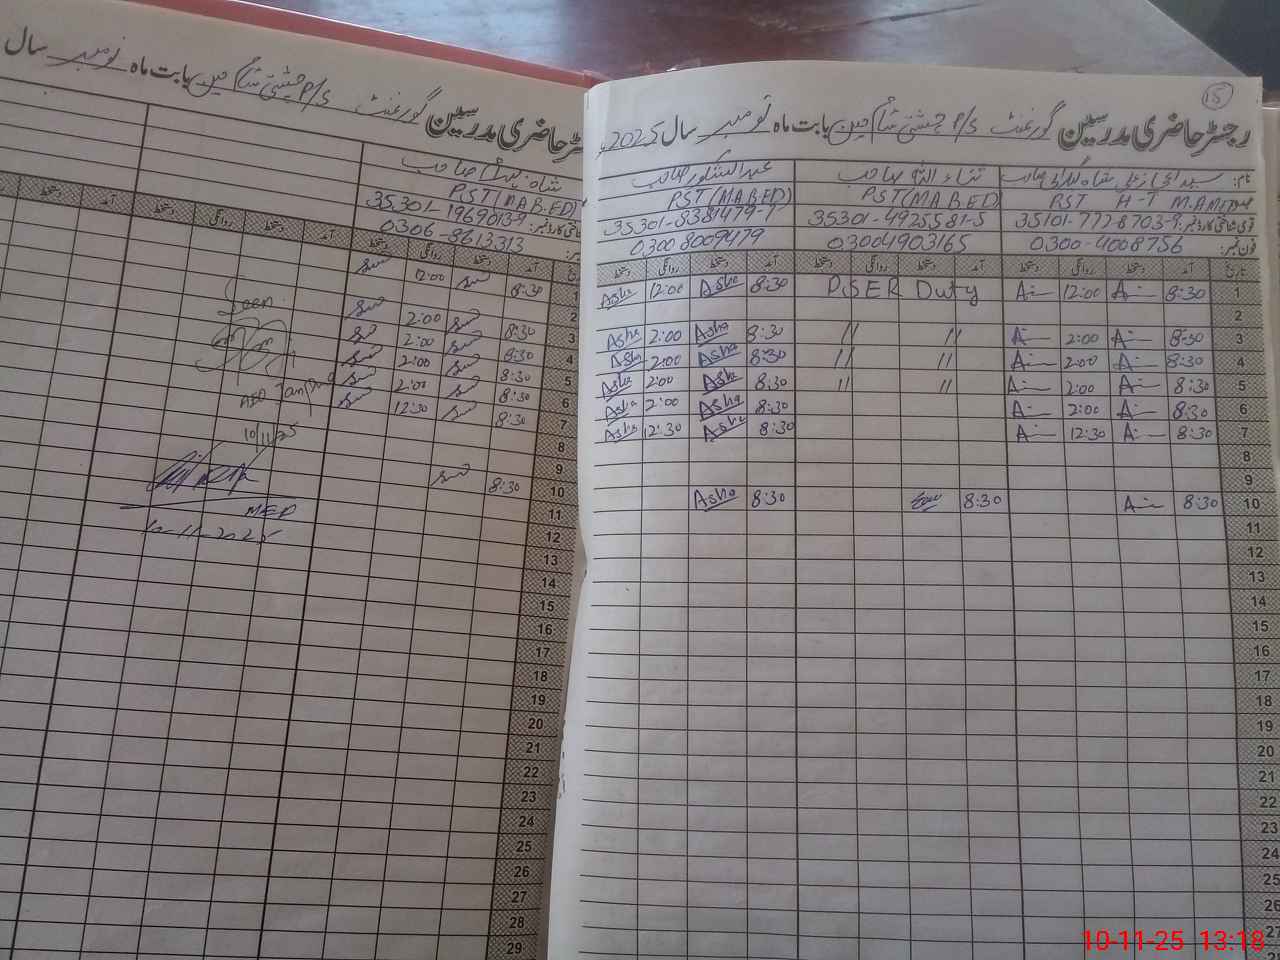 15
رجسٹر حاضری مدرسین گورنمنٹ P/S چشتی شام دین بابت ماہ نومبر سال 2025ء
نام:
ثناء اللہ صاحب
عبدالشکور صاحب
PST H-T
PST(MA B.ED)
PST(M.A B.ED)
قومی شناختی کارڈ نمبر: 35101-777-8703-9
35301-4925581-5
35301-8381479-7
فون نمبر: 0300-4008756
03004903165
0300 8009479
تاریخ آمد دستخط روانگی دستخط آمد دستخط روانگی دستخط آمد دستخط روانگی دستخط
1 8:30 A 12:00 A PSER Duty 8:30 Asha 12:00 Asha
2
3 8:30 A 2:00 A // // 8:30 Asha 2:00 Asha
4 8:30 A 2:00 A // // 8:30 Asha 2:00 Asha
5 8:30 A 2:00 A // // 8:30 Asha 2:00 Asha
6 8:30 A 2:00 A 8:30 Asha 2:00 Asha
7 8:30 A 12:30 A 8:30 Asha 12:30 Asha
8
9
10 8:30 A 8:30 8:30 Asha
11
12
13
14
15
16
17
18
19
20
21
22
23
24
25
26
27
رجسٹر حاضری مدرسین گورنمنٹ P/S چشتی شام دین بابت ماہ نومبر سال
صاحب
PST(MA B.ED)
قومی شناختی کارڈ نمبر: 35301-1969013-9
0306-8613313
تاریخ آمد دستخط روانگی دستخط آمد دستخط روانگی دستخط آمد دستخط
1 8:30 12:00
2
3 8:30 2:00
4 8:30 2:00
5 8:30 2:00
6 8:30 2:00
7 8:30 12:30
8
9
10 8:30
11
12
13
14
15
16
17
18
19
20
21
22
23
24
25
26
27
28
29
Seen
AEO
10/11/25
MEA
10-11-2025
10-11-25 13:18